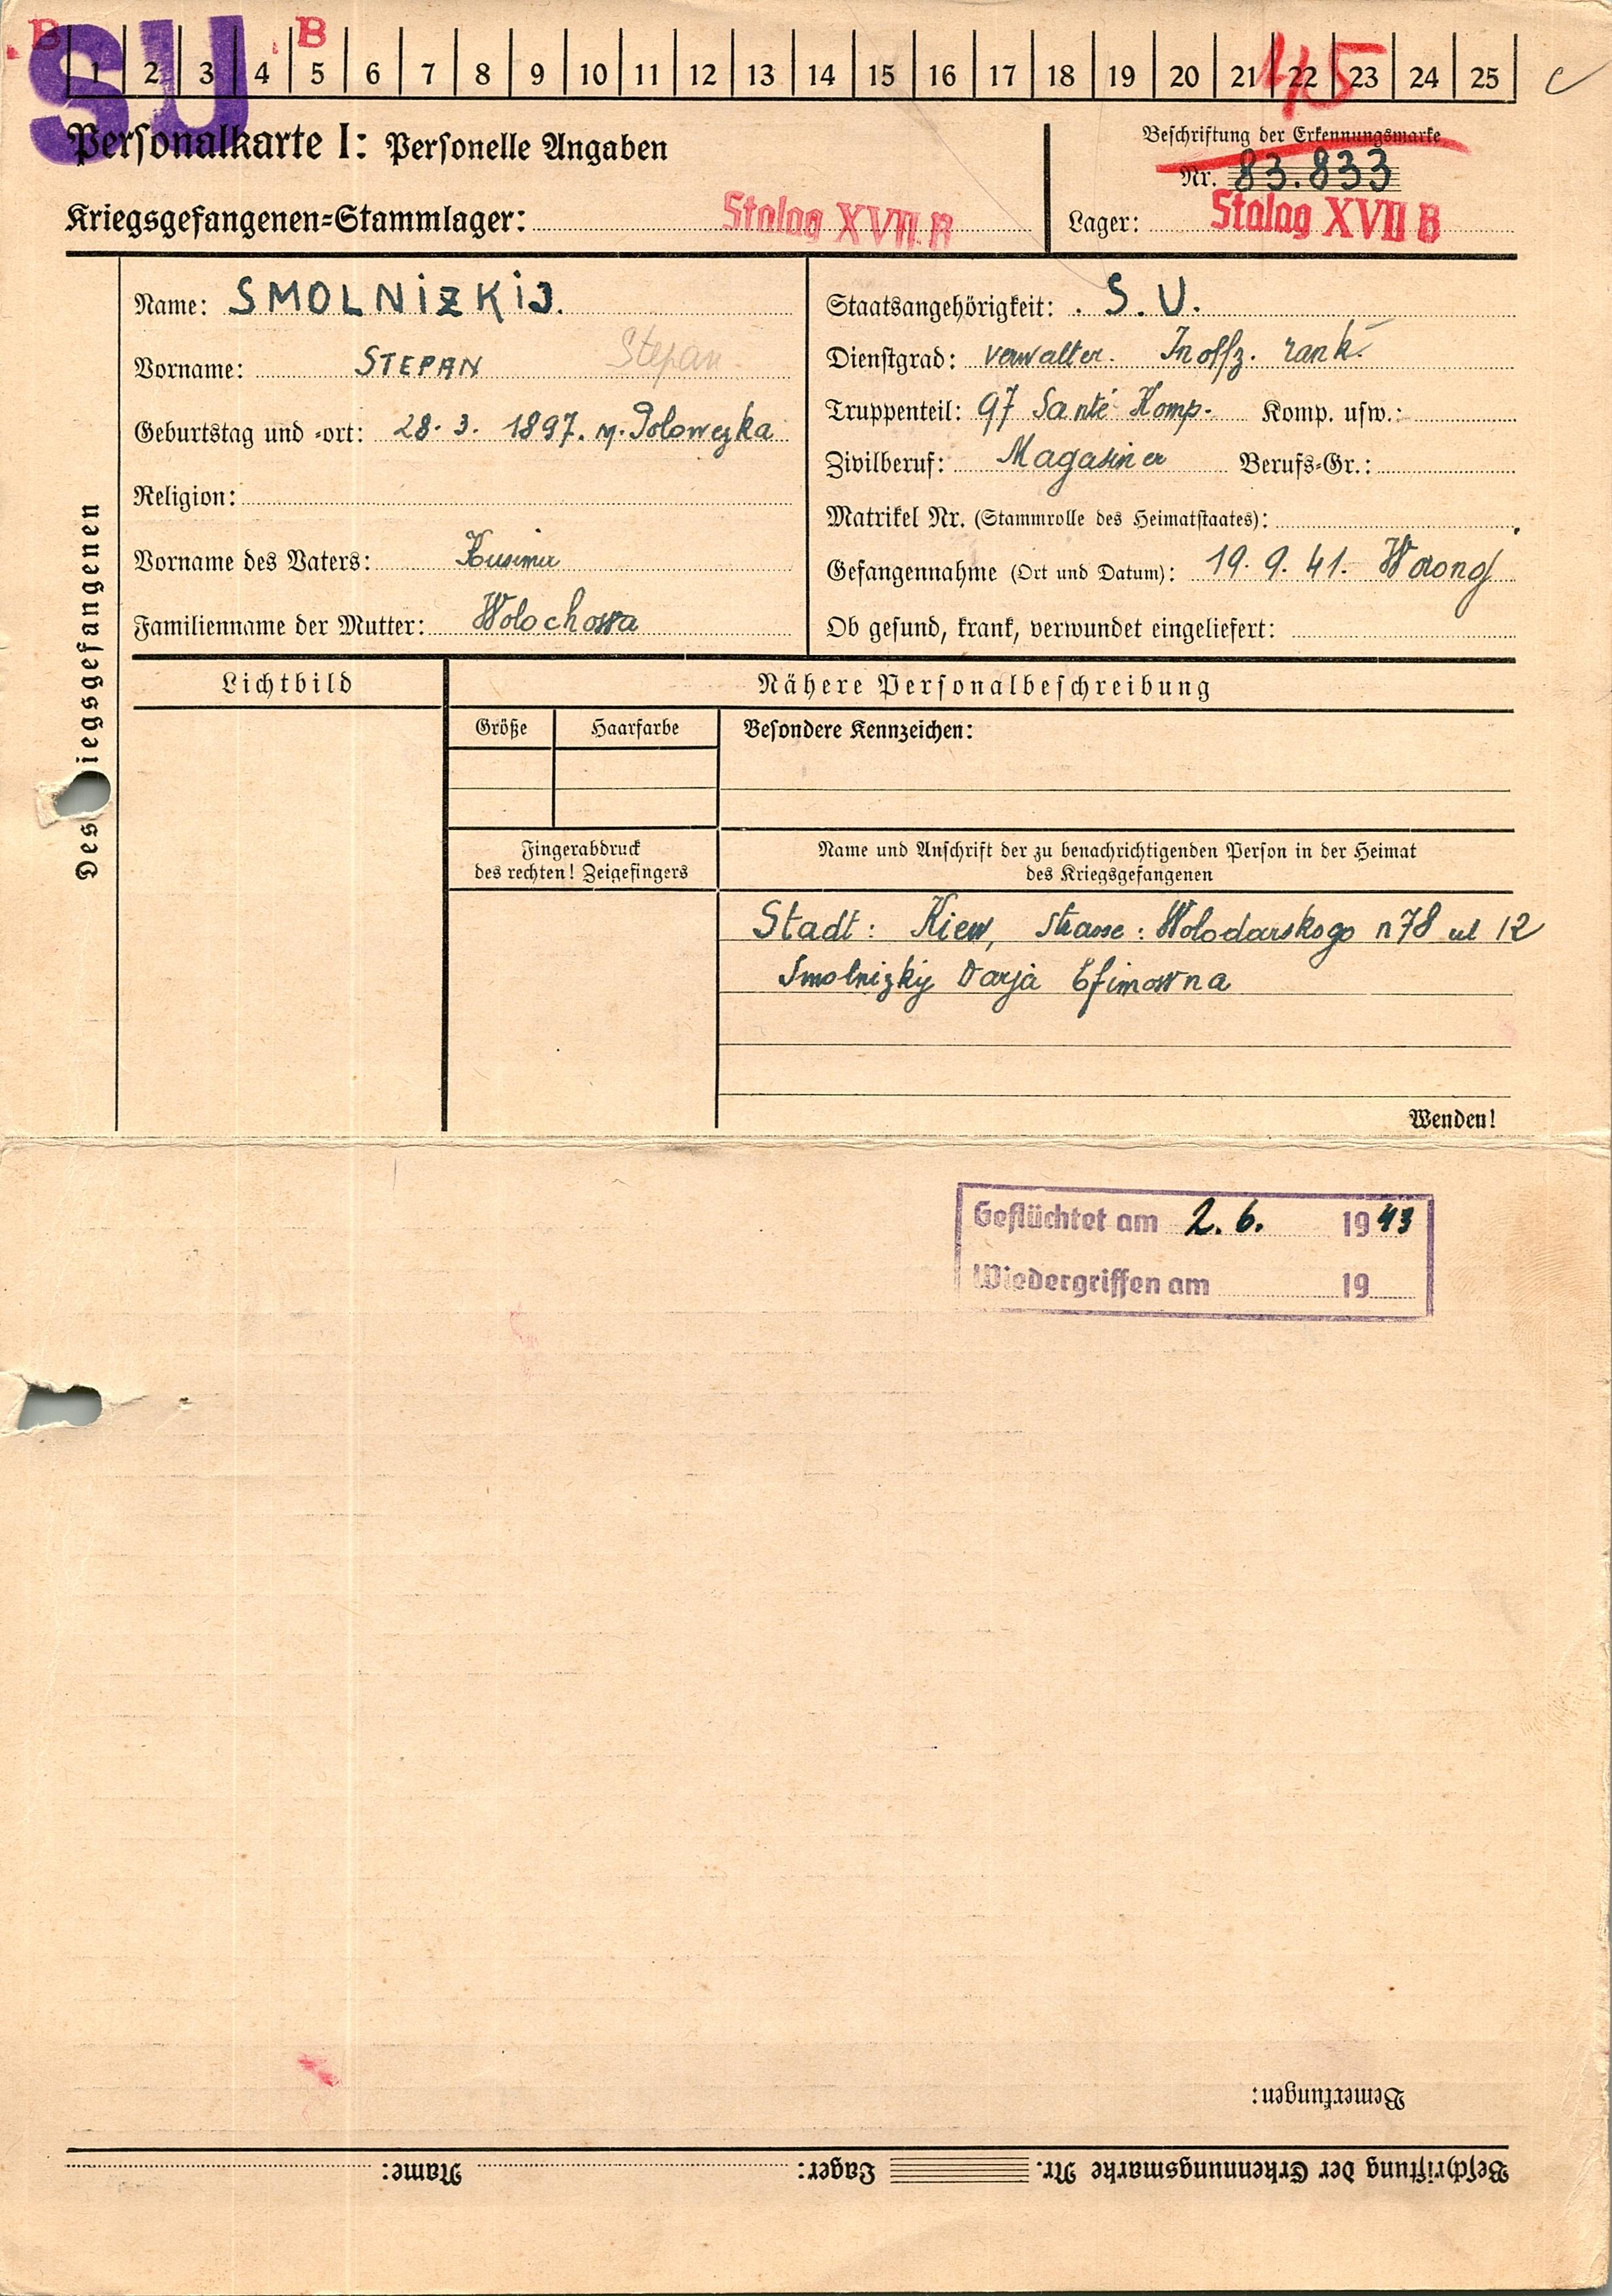 SU
B B
1 2 3 4 5 6 7 8 9 10 11 12 13 14 15 16 17 18 19 20 21 22 23 24 25
45
Personalkarte I: Personelle Angaben
Beschriftung der Erkennungsmarke
Nr. 83.833
Kriegsgefangenen-Stammlager: Stalag XVII B
Lager: Stalag XVII B
Des Kriegsgefangenen
Name: SMOLNIZKIJ.
Vorname: STEPAN Stepan
Geburtstag und -ort: 28. 3. 1897. Polowezka
Religion:
Vorname des Vaters: Kusima
Familienname der Mutter: Wolochowa
Staatsangehörigkeit: S. U.
Dienstgrad: verwalter. Inoffz. rank.
Truppenteil: 97 Santé Komp. Komp. usw.:
Zivilberuf: Magasiner Berufs-Gr.:
Matrikel Nr. (Stammrolle des Heimatstaates):
Gefangennahme (Ort und Datum): 19. 9. 41.
Ob gesund, krank, verwundet eingeliefert:
Lichtbild
Nähere Personalbeschreibung
Größe Haarfarbe
Besondere Kennzeichen:
Fingerabdruck
des rechten! Zeigefingers
Name und Anschrift der zu benachrichtigenden Person in der Heimat
des Kriegsgefangenen
Stadt: Kiew, strasse: Wolodarskogo n78 12
Smolnizky Darja Efimowna
Wenden!
Geflüchtet am 2. 6. 1943
Wiedergriffen am 19
Bemerkungen:
Beschriftung der Erkennungsmarke Nr. Lager: Name: